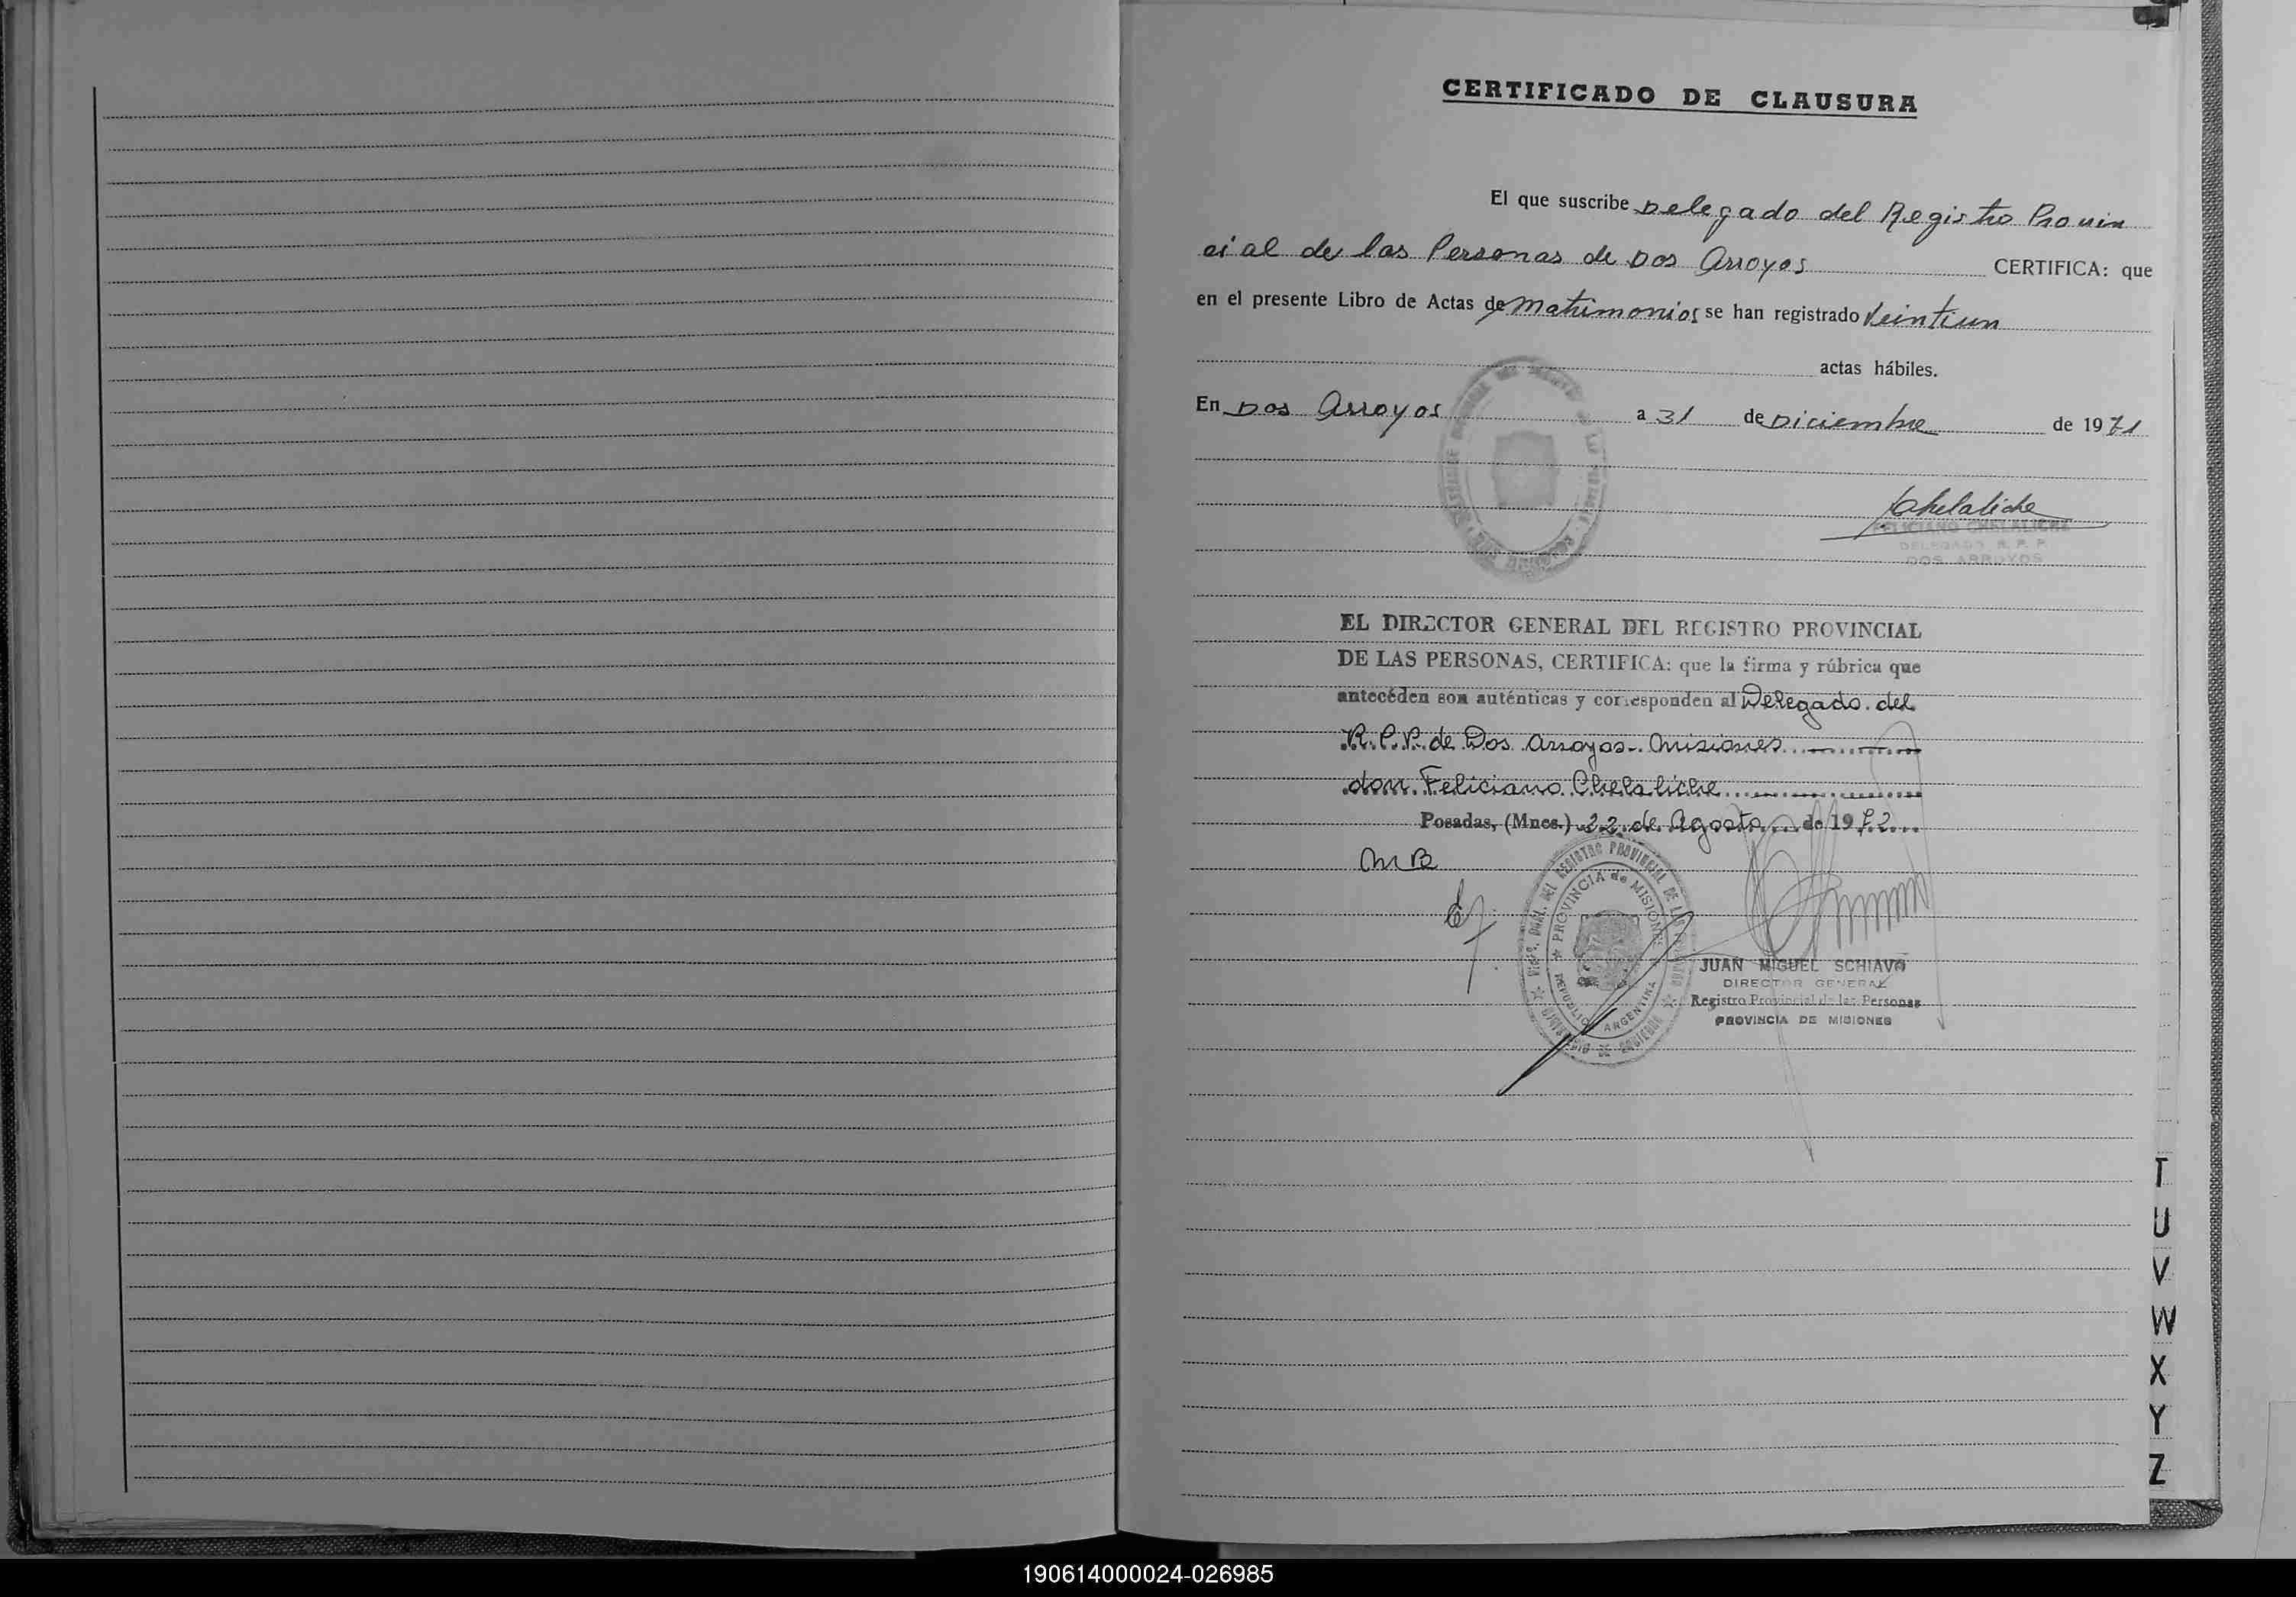 CERTIFICADO DE CLAUSURA
El que suscribe Delegado del Registro Provin
cial de las Personas de Dos Arroyos CERTIFICA: que
en el presente Libro de Actas de Matrimonios se han registrado Veintiun
actas hábiles.
En Dos Arroyos a 31 de Diciembre de 1971
Chelaliche
FELICIANO CHELALICHE
DELEGADO R. P. P.
DOS ARROYOS
EL DIRECTOR GENERAL DEL REGISTRO PROVINCIAL
DE LAS PERSONAS, CERTIFICA: que la firma y rúbrica que
antecéden son auténticas y corresponden al Delegado del
R.P.P. de Dos Arroyos - Misiones
don Feliciano Chelaliche
Posadas, (Mnes.) 22 de Agosto de 1972
MB
REGISTRO PROVINCIAL DE LAS
PROVINCIA de MISIONES
REPUBLICA ARGENTINA
JUAN MIGUEL SCHIAVO
DIRECTOR GENERAL
Registro Provincial de las Personas
PROVINCIA DE MISIONES
T
U
V
W
X
Y
Z
190614000024-026985